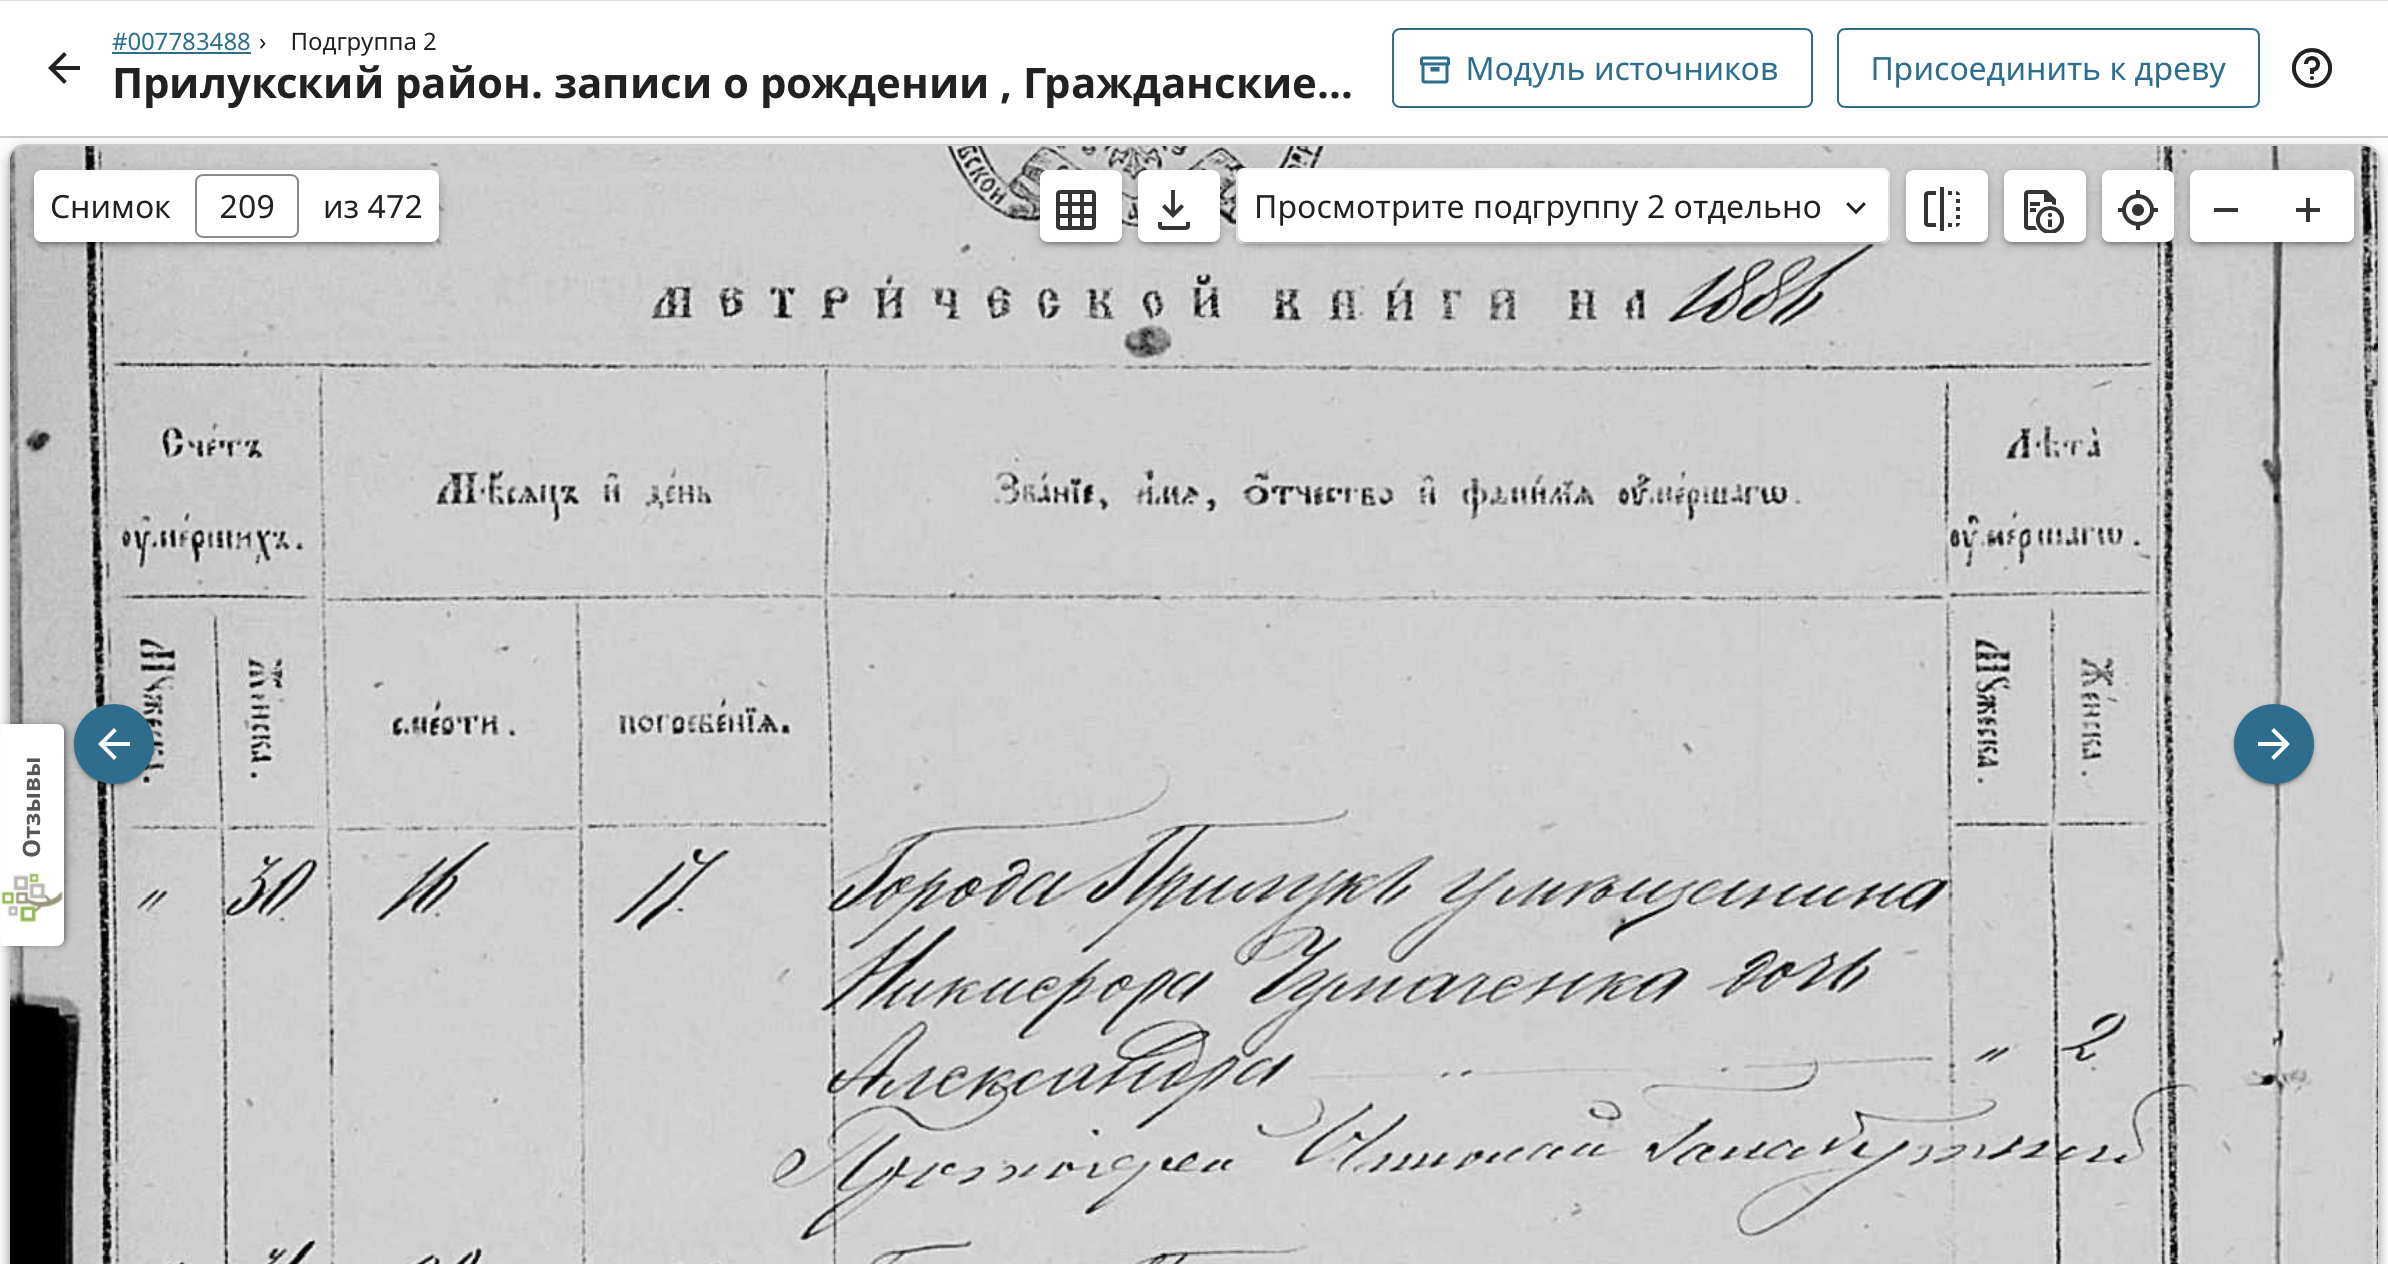 #007783488 › Подгруппа 2
Прилукский район. записи о рождении , Гражданские...
Модуль источников
Присоединить к древу
Снимок 209 из 472
Просмотрите подгруппу 2 отдельно
ВСКОЙ
МЕТРИ́ЧЕСКОЙ КНИ́ГИ НА 1886
Сче́тъ ѹ҆ме́ршихъ.
Мѣ́сѧцъ и҆ де́нь
Зва́нїе, и҆́мѧ, ѻ҆́тчество и҆ фами́лїѧ ѹ҆ме́ршагѡ.
Лѣта̀ ѹ҆ме́ршагѡ.
Мꙋ́жеска.
Же́нска.
сме́рти.
погребе́нїѧ.
Мꙋ́жеска.
Же́нска.
Отзывы
" 30 16. 17. Города Прилукъ у мѣщанина
Никифора Чумаченка дочь
Александра " 2
Протоіерей